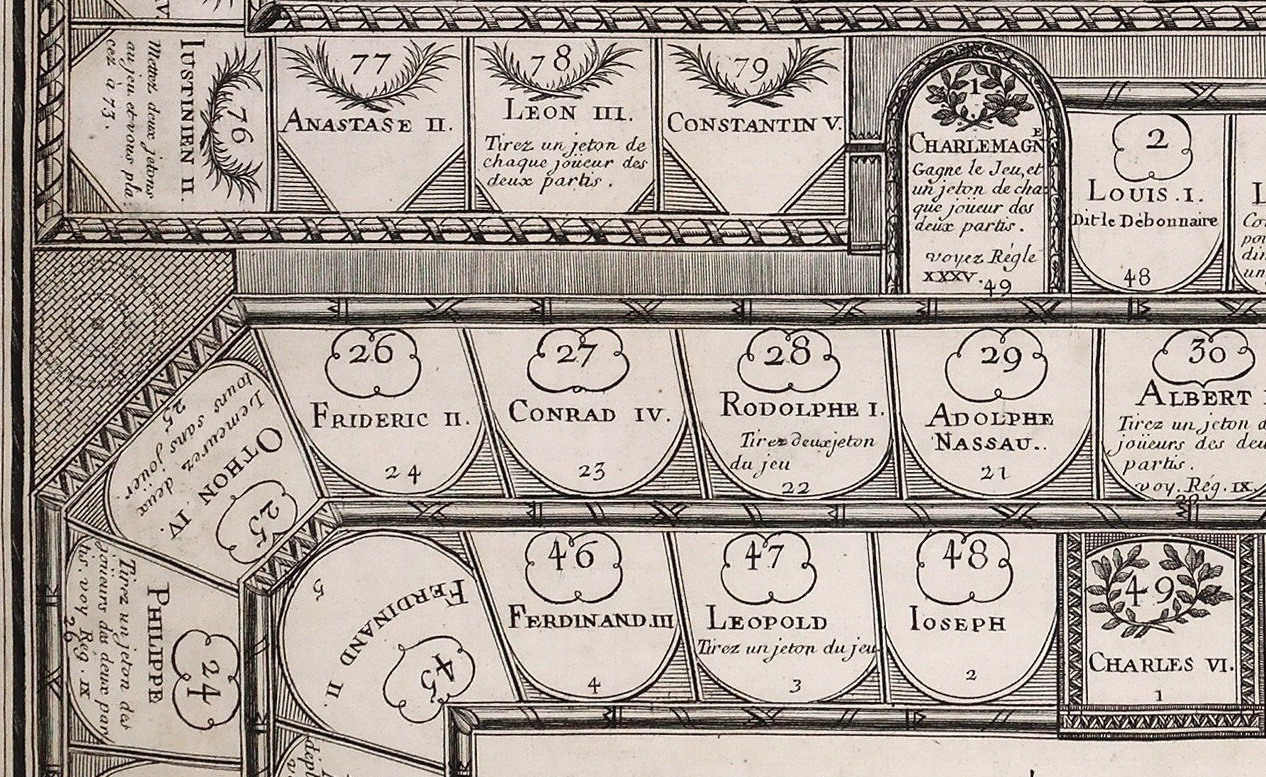 76
IUSTINIEN II.
Mettez deux jetons
au jeu et vous pla
cez à 73.
77
ANASTASE II.
78
LEON III.
Tirez un jeton de
chaque joüeur des
deux partis.
79
CONSTANTIN V.
1
CHARLEMAGNE
Gagne le Jeu, et
un jeton de cha
que joüeur des
deux partis.
voyez Règle
XXXV.
49
2
LOUIS.I.
Dit le Débonnaire
48
26
FRIDERIC II.
24
27
CONRAD IV.
23
28
RODOLPHE I.
Tirez deux jeton
du jeu
22
29
ADOLPHE
NASSAU..
21
30
ALBERT
Tirez un jeton
joüeurs des
partis.
voy. Rég. IX.
20
25
OTHON IV.
Demeurez deux
tours sans jouer
25
24
PHILIPPE
Tirez un jeton des
joüeurs du deux par
tis voy Reg. IX
26
45
FERDINAND II.
5
46
FERDINAND.III
4
47
LEOPOLD
Tirez un jeton du jeu
3
48
IOSEPH
2
49
CHARLES VI.
1